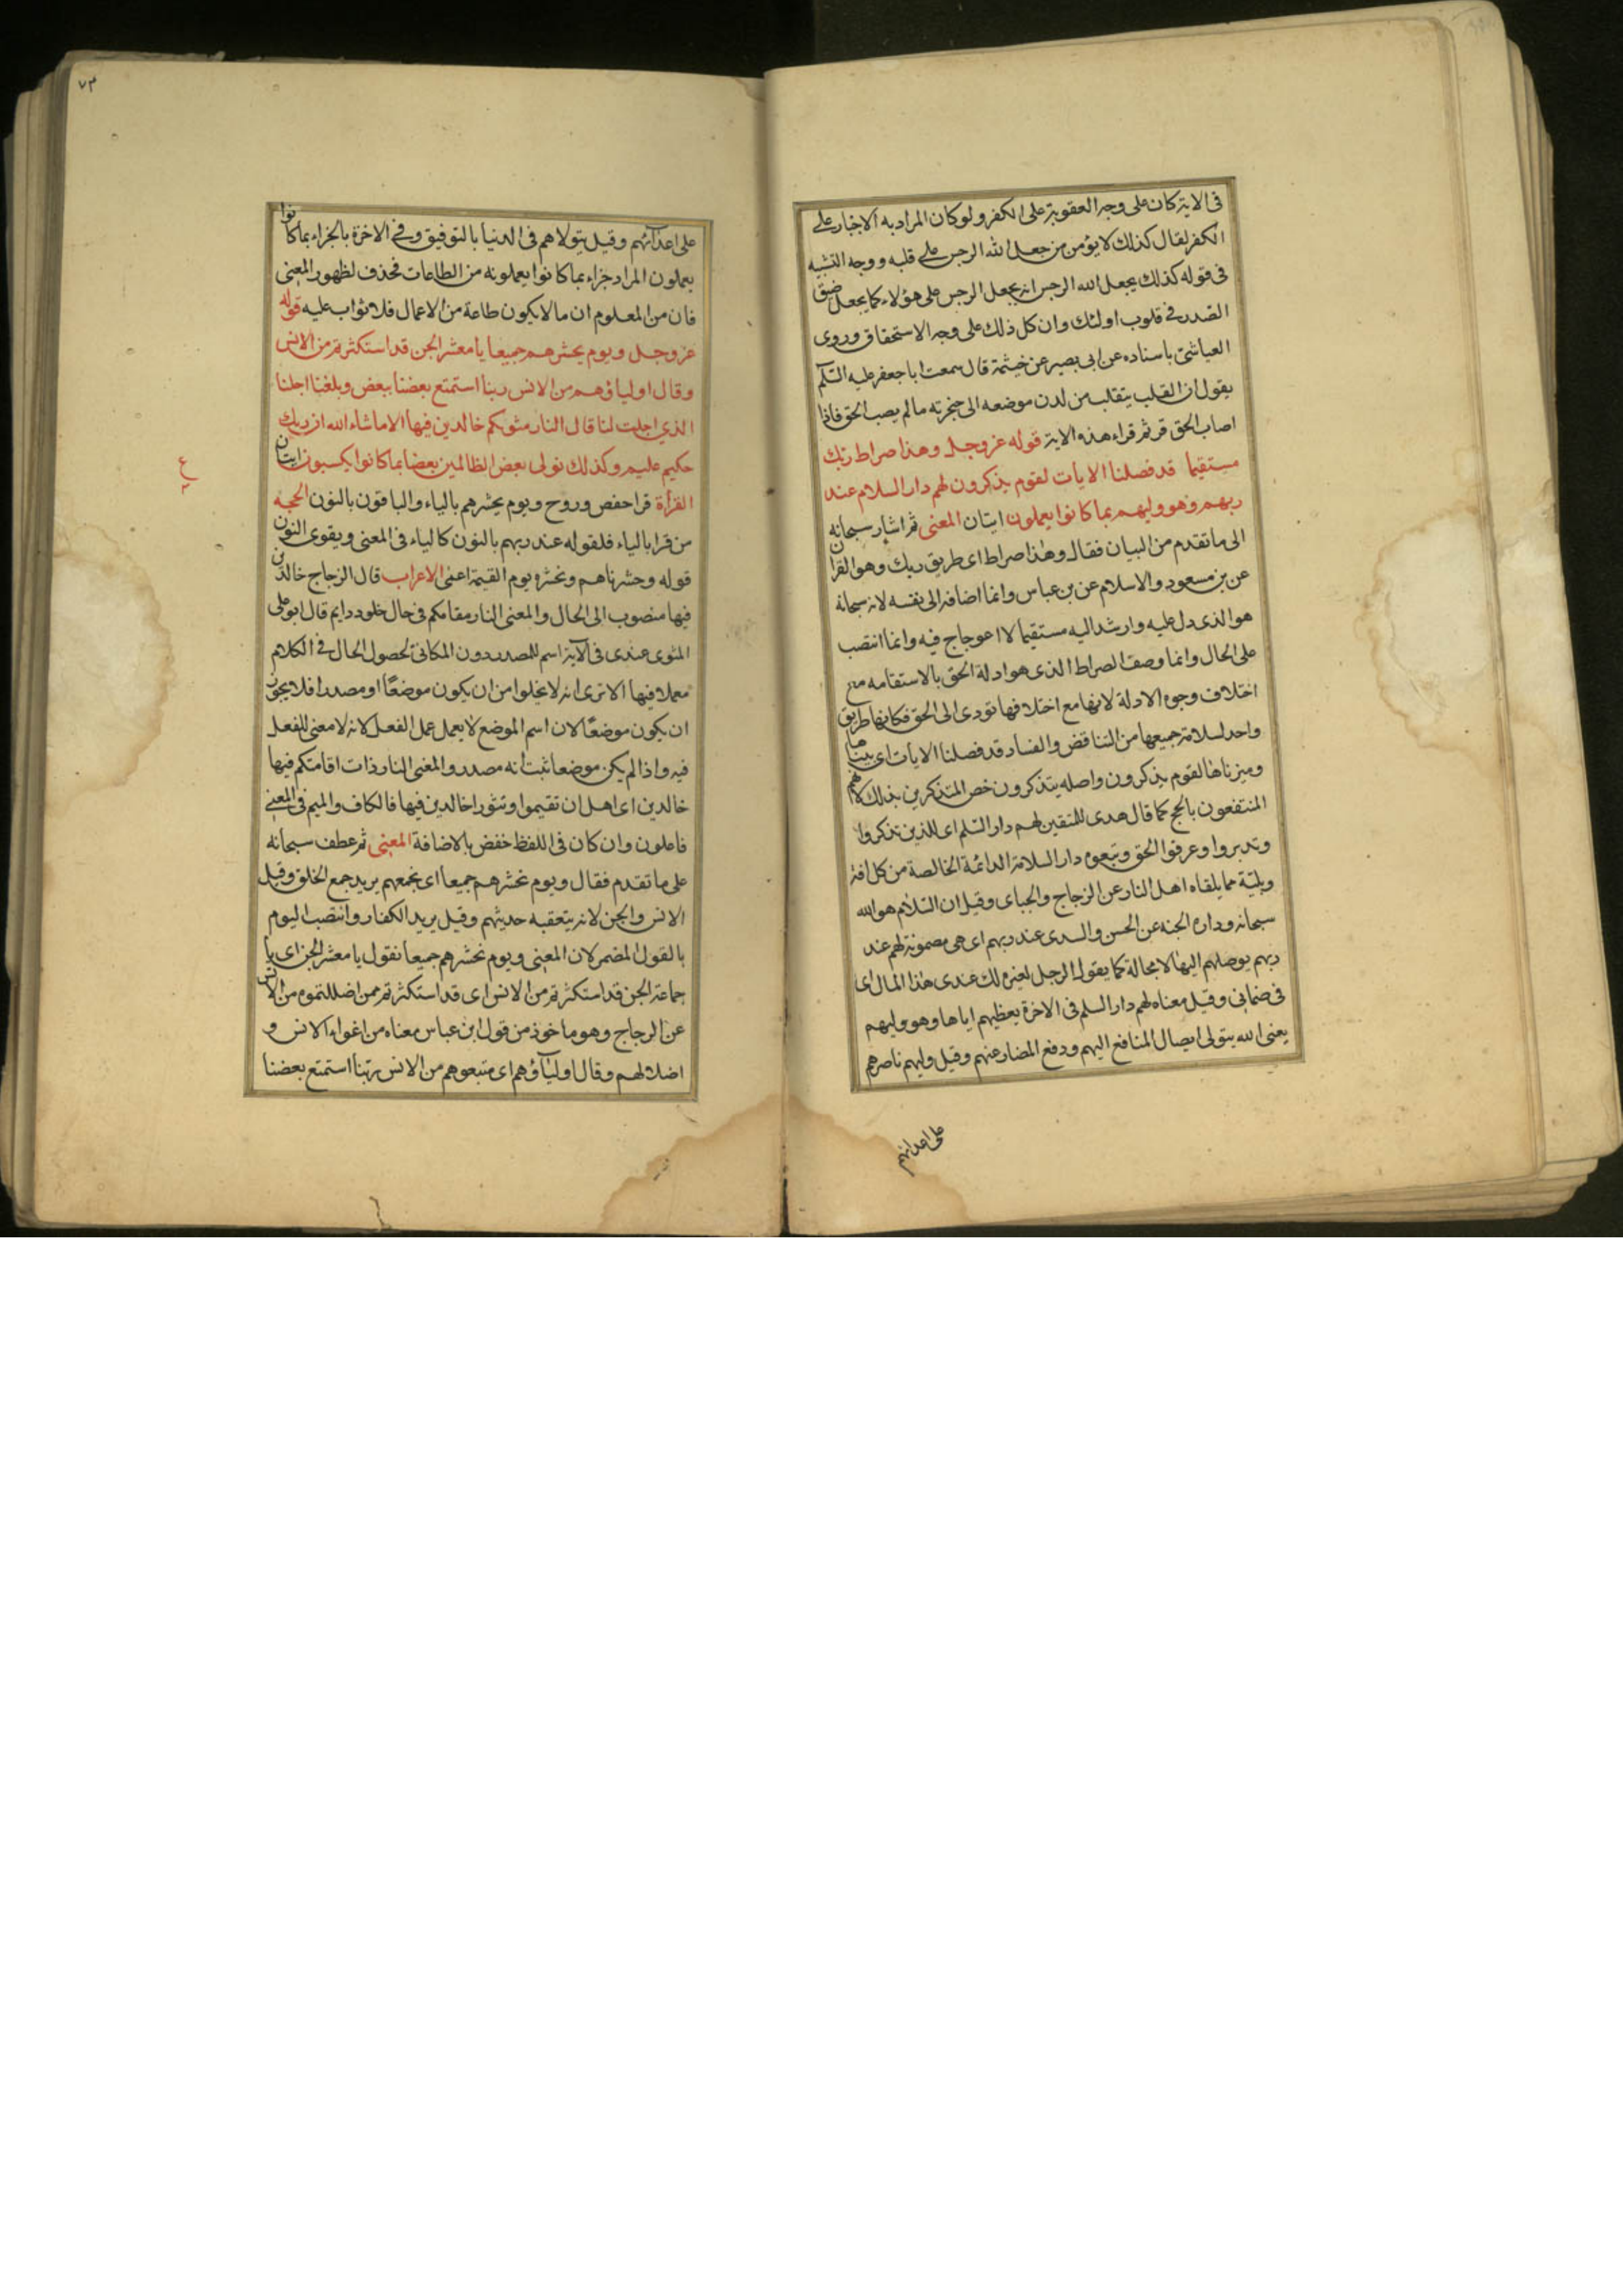 فى الاية كان على وجه العقوبة على الكفر ولو كان المراد به الاجبار على
الكفر لقال كذلك لا يؤمن من جعل الله الرجس على قلبه ووجه التشبيه
فى قوله كذلك يجعل الله الرجس انه يجعل الرجس على هؤلاء كما يجعل ضيق
الصدر فى قلوب اولئك وان كل ذلك على وجه الاستحقاق وروى
العياشى باسناده عن ابى بصير عن خيثمة قال سمعت ابا جعفر عليه السلم
يقول ان القلب يتقلب من لدن موضعه الى حنجرته ما لم يصب الحق فاذا
اصاب الحق قر ثم قراء هذه الاية قوله عز وجل وهذا صراط ربك
مستقيما قد فصلنا الايات لقوم يذكرون لهم دار السلام عند
ربهم وهو وليهم بما كانوا يعملون ايتان المعنى ثم اشار سبحانه
الى ما تقدم من البيان فقال وهذا صراط اى طريق ربك وهو القران
عن بن مسعود والاسلام عن بن عباس وانما اضافه الى نفسه لانه سبحانه
هو الذى دل عليه وارشد اليه مستقيما لا اعوجاج فيه وانما انتصب
على الحال وانما وصف الصراط الذى هو ادلة الحق بالاستقامه مع
اختلاف وجوه الادلة لانها مع اختلافها تودى الى الحق فكانها طريق
واحد لسلامة جميعها من التناقض والفساد قد فصلنا الايات اى بيناها
وميزناها لقوم يذكرون واصله يتذكرون خص المتذكرين بذلك لانهم
المنتفعون بالحجج كما قال هدى للمتقين لهم دار السلم اى للذين تذكروا
وتدبروا وعرفوا الحق وتبعوه دار السلامة الدائمة الخالصة من كل افة
وبلية مما يلقاه اهل النار عن الزجاج والجباى وقيل ان السلام هو الله
سبحانه وداره الجنه عن الحسن والسدى عند ربهم اى هى مضمونة لهم عند
ربهم يوصلهم اليها لا محالة كما يقول الرجل لغيره لك عندى هذا المال اى
فى ضمانى وقيل معناه لهم دار السلم فى الاخرة يعطيهم اياها وهو وليهم
يعنى الله يتولى ايصال المنافع اليهم ودفع المضار عنهم وقيل وليهم ناصرهم
على اعدائهم
٧٣
على اعدآئهم وقيل يتولاهم فى الدنيا بالتوفيق وفى الاخرة بالجزاء بما كانوا
يعملون المراد جزاء بما كانوا يعملونه من الطاعات فحذف لظهور المعنى
فان من المعلوم ان ما لا يكون طاعة من الاعمال فلا ثواب عليه قوله
عز وجل ويوم يحشرهم جميعا يا معشر الجن قد استكثرتم من الانس
وقال اولياؤهم من الانس ربنا استمتع بعضنا ببعض وبلغنا اجلنا
الذى اجلت لنا قال النار مثويكم خالدين فيها الا ما شاء الله ان ربك
حكيم عليم وكذلك نولى بعض الظالمين بعضا بما كانوا يكسبون ايتان
القرأة قرا حفص وروح ويوم يحشرهم بالياء والباقون بالنون الحجه
من قرا بالياء فلقوله عند ربهم بالنون كالياء فى المعنى ويقوى النون
قوله وحشرناهم ونحشره يوم القيمة اعنى الاعراب قال الزجاج خالدين
فيها منصوب الى الحال والمعنى النار مقامكم فى حال خلود دايم قال ابو على
المثوى عندى فى الآية اسم للمصدر دون المكان لحصول الحال فى الكلام
معملا فيها الا ترى انه لا يخلوا من ان يكون موضعا او مصدرا فلا يجوز
ان يكون موضعا لان اسم الموضع لا يعمل عمل الفعل لانه لا معنى للفعل
فيه واذا لم يكن موضعا ثبت انه مصدر والمعنى النار ذات اقامتكم فيها
خالدين اى اهل ان تقيموا وتثورا خالدين فيها فالكاف والميم فى المعنى
فاعلون وان كان فى اللفظ خفض بالاضافة المعنى ثم عطف سبحانه
على ما تقدم فقال ويوم نحشرهم جميعا اى نجمعهم يريد جمع الخلق وقيل
الانس والجن لانه يتعقبه حديثهم وقيل يريد الكفار وانتصب اليوم
بالقول المضمر لان المعنى ويوم نحشرهم جميعا نقول يا معشر الجن اى يا
جماعة الجن قد استكثرتم من الانس اى قد استكثرتم ممن اضللتموه من الانس
عن الزجاج وهو ماخوذ من قول ابن عباس معناه من اغواء الانس و
اضلالهم وقال اوليآؤهم اى متبعوهم من الانس ربنا استمتع بعضنا